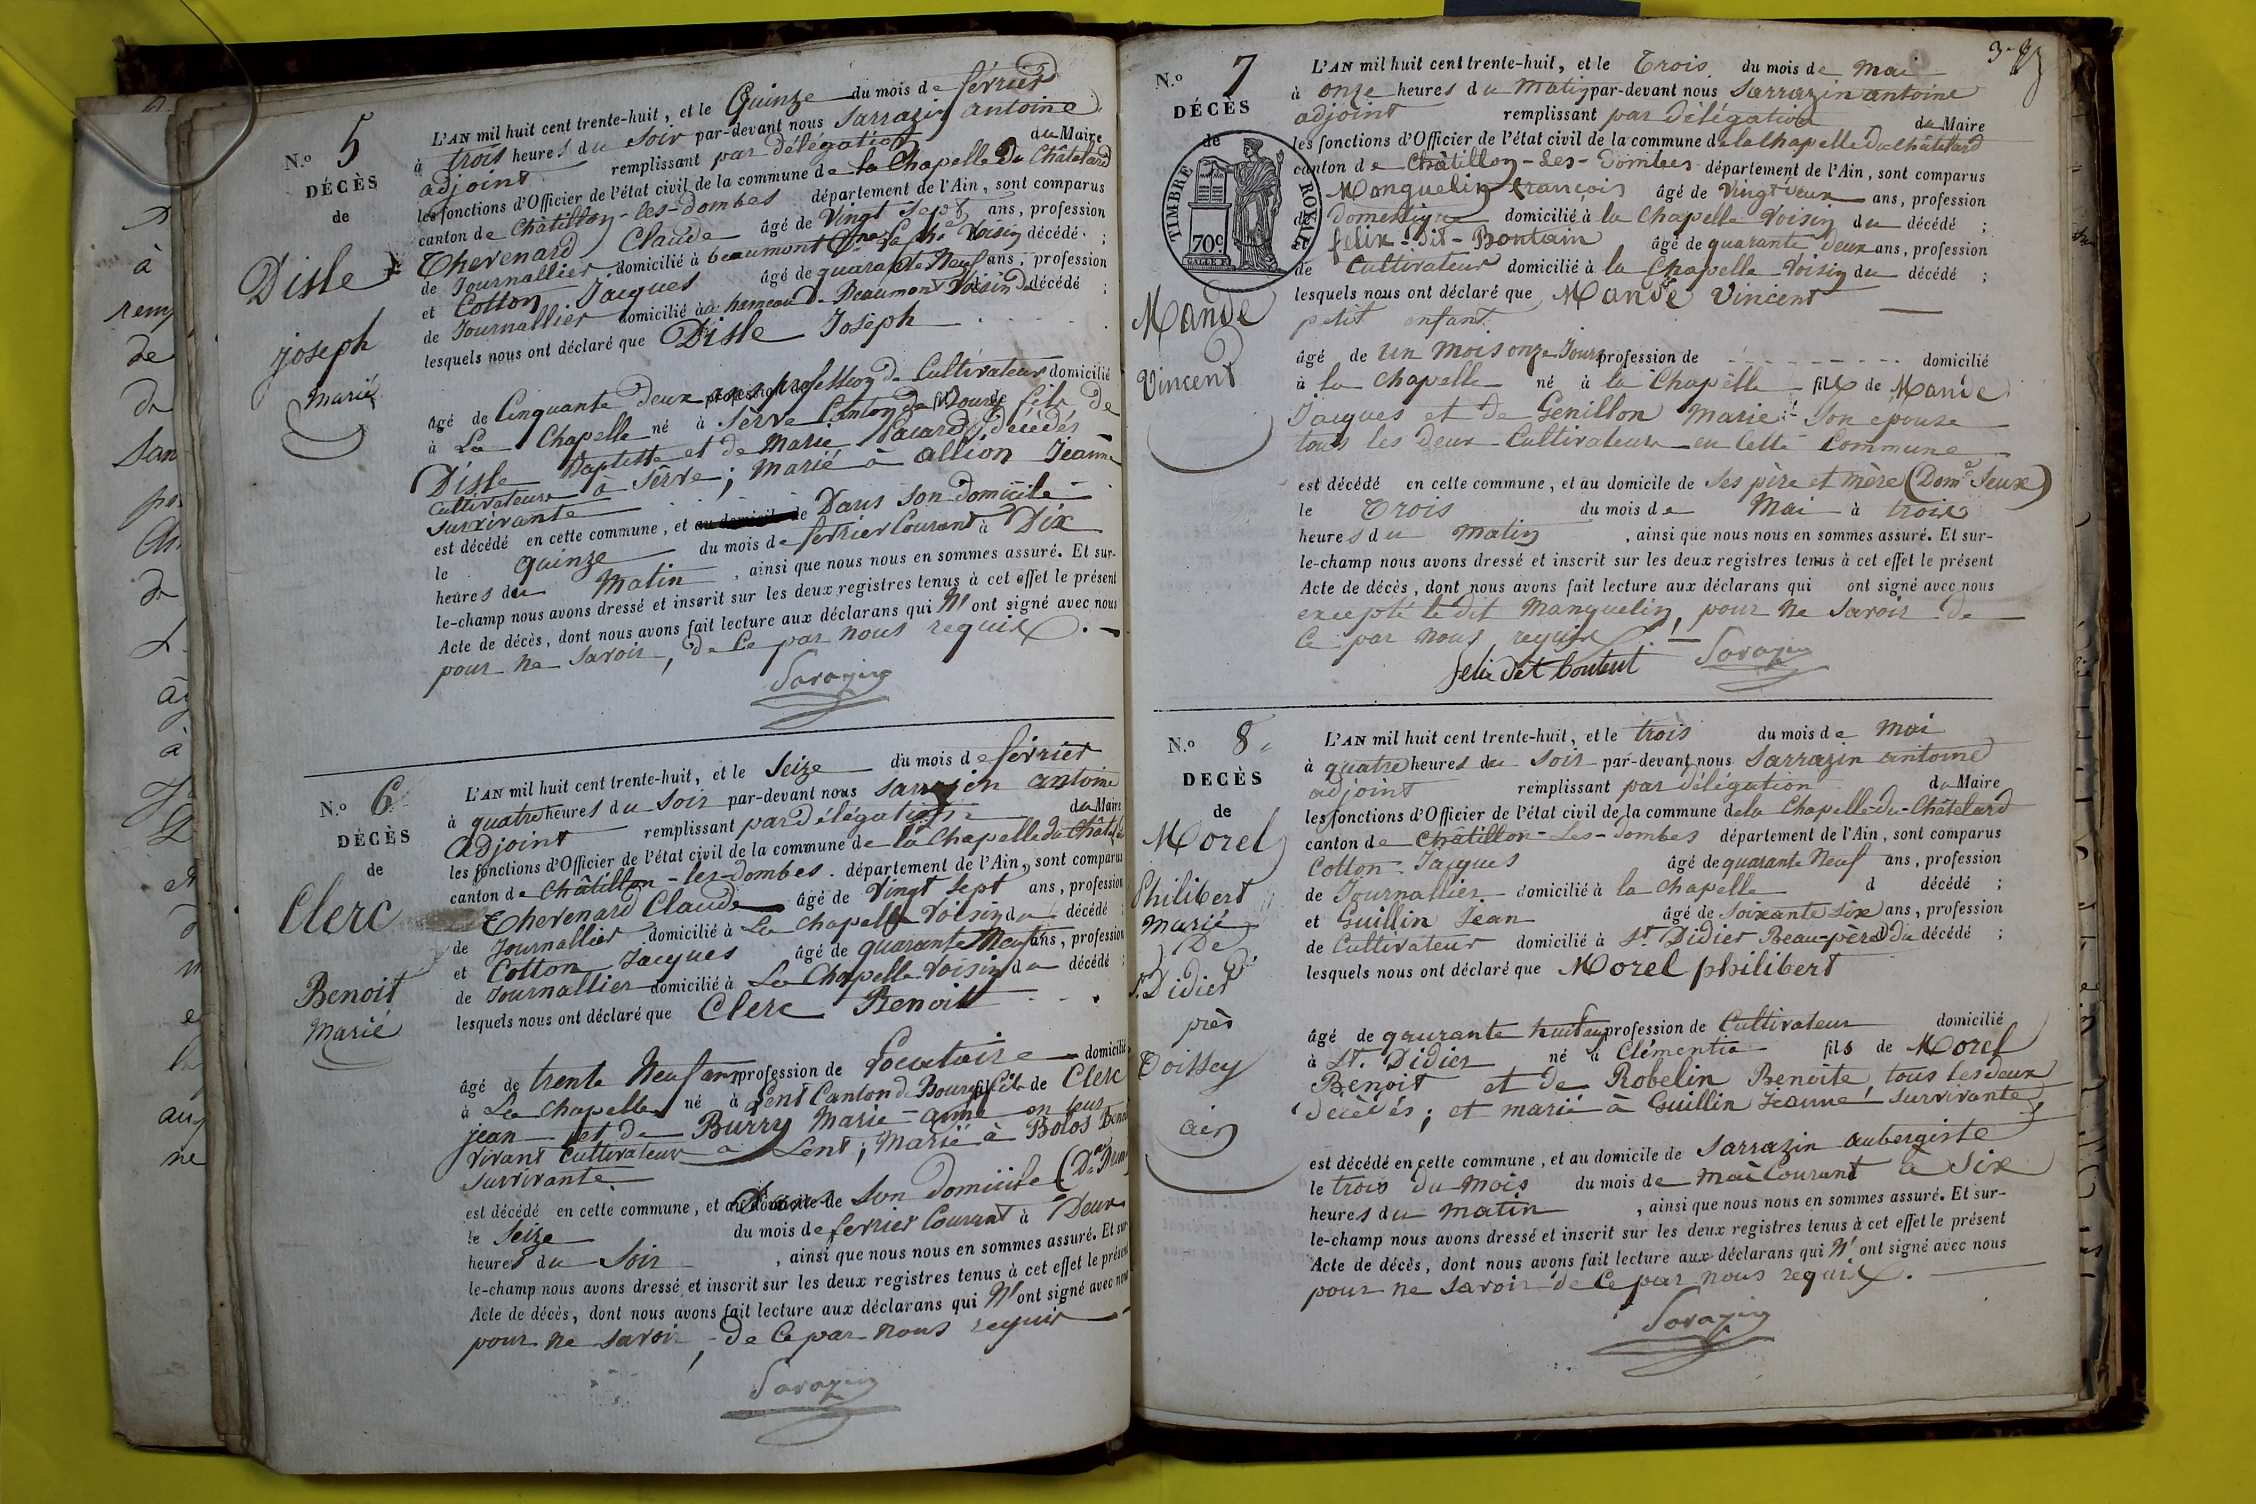 N.o 5
DÉCÈS
de
Disle
joseph
marié
L'AN mil huit cent trente-huit, et le Quinze du mois de février
à trois heures du soir par-devant nous Sarrazin antoine
adjoint remplissant par délégation du Maire
les fonctions d'Officier de l'état civil de la commune de la Chapelle Du Châtelard
canton de Châtillon-les-Dombes département de l'Ain, sont comparus
Thevenard Claude âgé de Vingt Sept ans, profession
de Journallier domicilié à beaumont Voisin décédé ;
et Cotton Jacques âgé de quarante Neuf ans, profession
de Journallier domicilié au hameau De Beaumont Voisin du décédé ;
lesquels nous ont déclaré que Disle Joseph
âgé de Cinquante Deux ans profession de Cultivateur domicilié
à La Chapelle né à Serve Canton de fils de
Disle Baptiste et de Marie Pacard décédés
Cultivateurs à Serve ; marié à allion Jeanne
Survivante
est décédé en cette commune, et au domicile de Dans Son Domicile
le quinze du mois de fevrier Courant à Dix
heures du Matin, ainsi que nous nous en sommes assuré. Et sur-
le-champ nous avons dressé et inscrit sur les deux registres tenus à cet effet le présent
Acte de décès, dont nous avons fait lecture aux déclarans qui N' ont signé avec nous
pour ne Savoir, de Ce par nous requis.
Sarazin
N.o 6
DÉCÈS
de
Clerc
Benoit
marié
L'AN mil huit cent trente-huit, et le Seize du mois de février
à quatre heures du Soir par-devant nous Sarrazin antoine
adjoint remplissant par délégation du Maire
les fonctions d'Officier de l'état civil de la commune de la Chapelle du Châtel
canton de Châtillon-les-Dombes département de l'Ain, sont comparus
Thevenard Claude âgé de Vingt Sept ans, profession
de Journallier domicilié à La Chapelle Voisin du décédé ;
et Cotton Jacques âgé de quarante Neuf ans, profession
de Journallier domicilié à La Chapelle Voisin du décédé ;
lesquels nous ont déclaré que Clerc Benoit
âgé de trente Neuf ans profession de Locataire domicilié
à La Chapelle né à Lent Canton de Bourg fils de Clerc
jean et de Burry Marie-anne en leur
vivant Cultivateurs à Lent ; Marié à Bolos
Survivante
est décédé en cette commune, et au domicile de Dans Son Domicile
le Seize du mois de fevrier Courant à Deux
heures du Soir, ainsi que nous nous en sommes assuré. Et sur
le-champ nous avons dressé et inscrit sur les deux registres tenus à cet effet le présent
Acte de décès, dont nous avons fait lecture aux déclarans qui N' ont signé avec nous
pour ne Savoir, de Ce par nous requis
Sarazin
N.o 7
DÉCÈS
de
TIMBRE ROYAL
70c
Mande
Vincent
L'AN mil huit cent trente-huit, et le Trois du mois de Mai
à onze heures du Matin par-devant nous Sarrazin antoine
adjoint remplissant par Délégation du Maire
les fonctions d'Officier de l'état civil de la commune de la Chapelle Du Châtelard
canton de Châtillon-Les-Dombes département de l'Ain, sont comparus
Manguelin françois âgé de Vingt Deux ans, profession
de Domestique domicilié à la Chapelle Voisin du décédé ;
et felix-dit-Bontain âgé de quarante Deux ans, profession
de Cultivateur domicilié à la Chapelle Voisin du décédé ;
lesquels nous ont déclaré que Mande Vincent
petit enfant
âgé de Un Mois onze Jours profession de domicilié
à la Chapelle né à la Chapelle fils de Mande
Jacques et de Genillon Marie Son epouse
tous les Deux Cultivateurs en Cette Commune
est décédé en cette commune, et au domicile de Ses père et mère (Dom.e Jeux)
le Trois du mois de Mai à trois
heures du Matin, ainsi que nous nous en sommes assuré. Et sur-
le-champ nous avons dressé et inscrit sur les deux registres tenus à cet effet le présent
Acte de décès, dont nous avons fait lecture aux déclarans qui ont signé avec nous
excepté le dit Manguelin, pour Ne Savoir de
Ce par nous requis.
Sarazin
N.o 8
DECÈS
de
Morel
Philibert
marié
De
St. Didier
près
Toissey
ain
L'AN mil huit cent trente-huit, et le trois du mois de Mai
à quatre heures du Soir par-devant nous Sarrazin antoine
adjoint remplissant par délégation du Maire
les fonctions d'Officier de l'état civil de la commune de la Chapelle-du-Châtelard
canton de Châtillon-Les-Dombes département de l'Ain, sont comparus
Cotton Jacques âgé de quarante Neuf ans, profession
de Journallier domicilié à la Chapelle d décédé ;
et Guillin Jean âgé de Soixante Six ans, profession
de Cultivateur domicilié à St. Didier Beau-père du décédé ;
lesquels nous ont déclaré que Morel philibert
âgé de quarante huit ans profession de Cultivateur domicilié
à St. Didier né à Clémentia fils de Morel
Benoit et de Robelin Benoite, tous les deux
décédés ; et marié à Guillin Jeanne Survivante
est décédé en cette commune, et au domicile de Sarrazin aubergiste
le trois du Mois du mois de Mai Courant à Six
heures du Matin, ainsi que nous nous en sommes assuré. Et sur-
le-champ nous avons dressé et inscrit sur les deux registres tenus à cet effet le présent
Acte de décès, dont nous avons fait lecture aux déclarans qui N' ont signé avec nous
pour ne Savoir de Ce par nous requis.
Sarazin